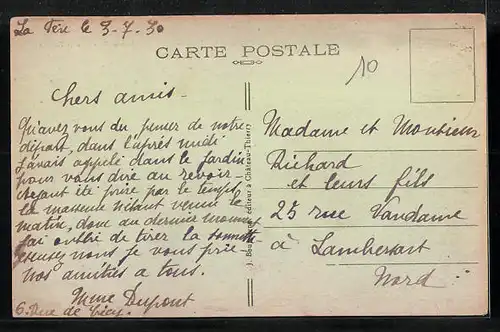 La Fère le 3-7-30
CARTE POSTALE
10
Chers amis -
Qu'avez vous du penser de notre
départ, dans l'après midi
j'avais appelé dans le jardin
pour vous dire au revoir -
ayant été prise par le temps,
la masseuse n'étant venue le
matin, donc au dernier moment
j'ai oublié de tirer la sonnette
excusez nous je vous prie
nos amitiés a tous.
Mme Dupont
6. Rue de
J. Bourgogne, éditeur à Château-Thierry
Madame et Monsieur
Richard
et leurs fils
25 rue Vandame
à Lambersart
Nord